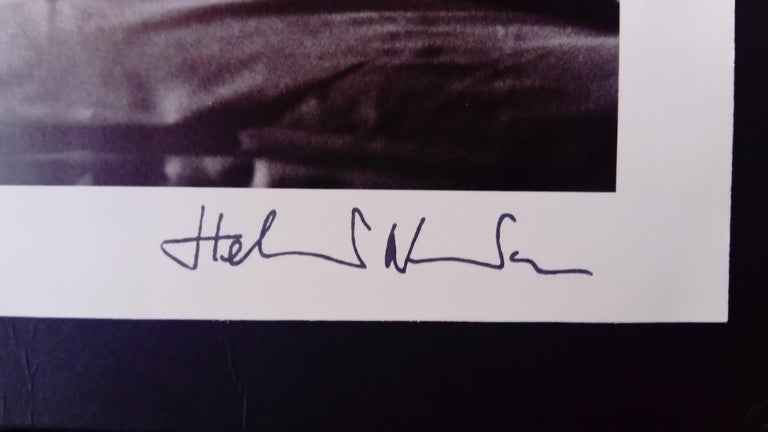 Helmut Newton